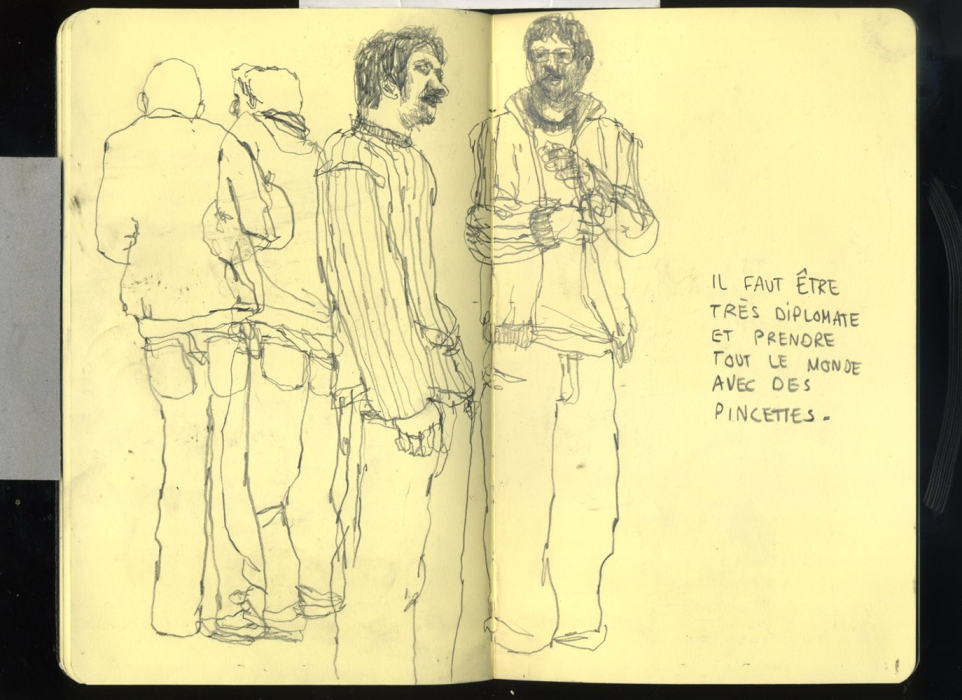 IL FAUT ÊTRE
TRÈS DIPLOMATE
ET PRENDRE
TOUT LE MONDE
AVEC DES
PINCETTES.